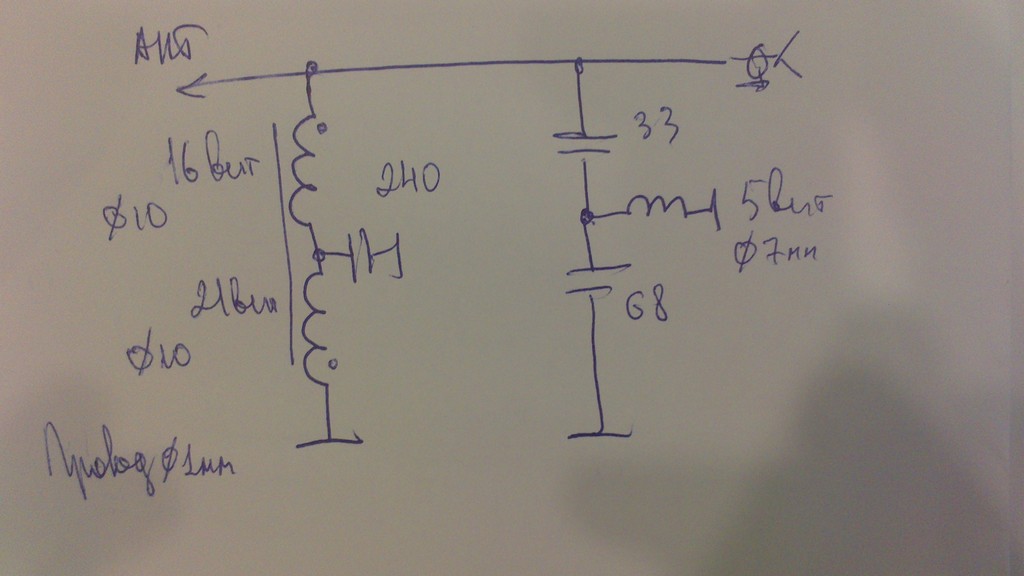 АНТ
33
16 вит
240
Ø10
5 вит
Ø7мм
21 вит
68
Ø10
Провод Ø1мм